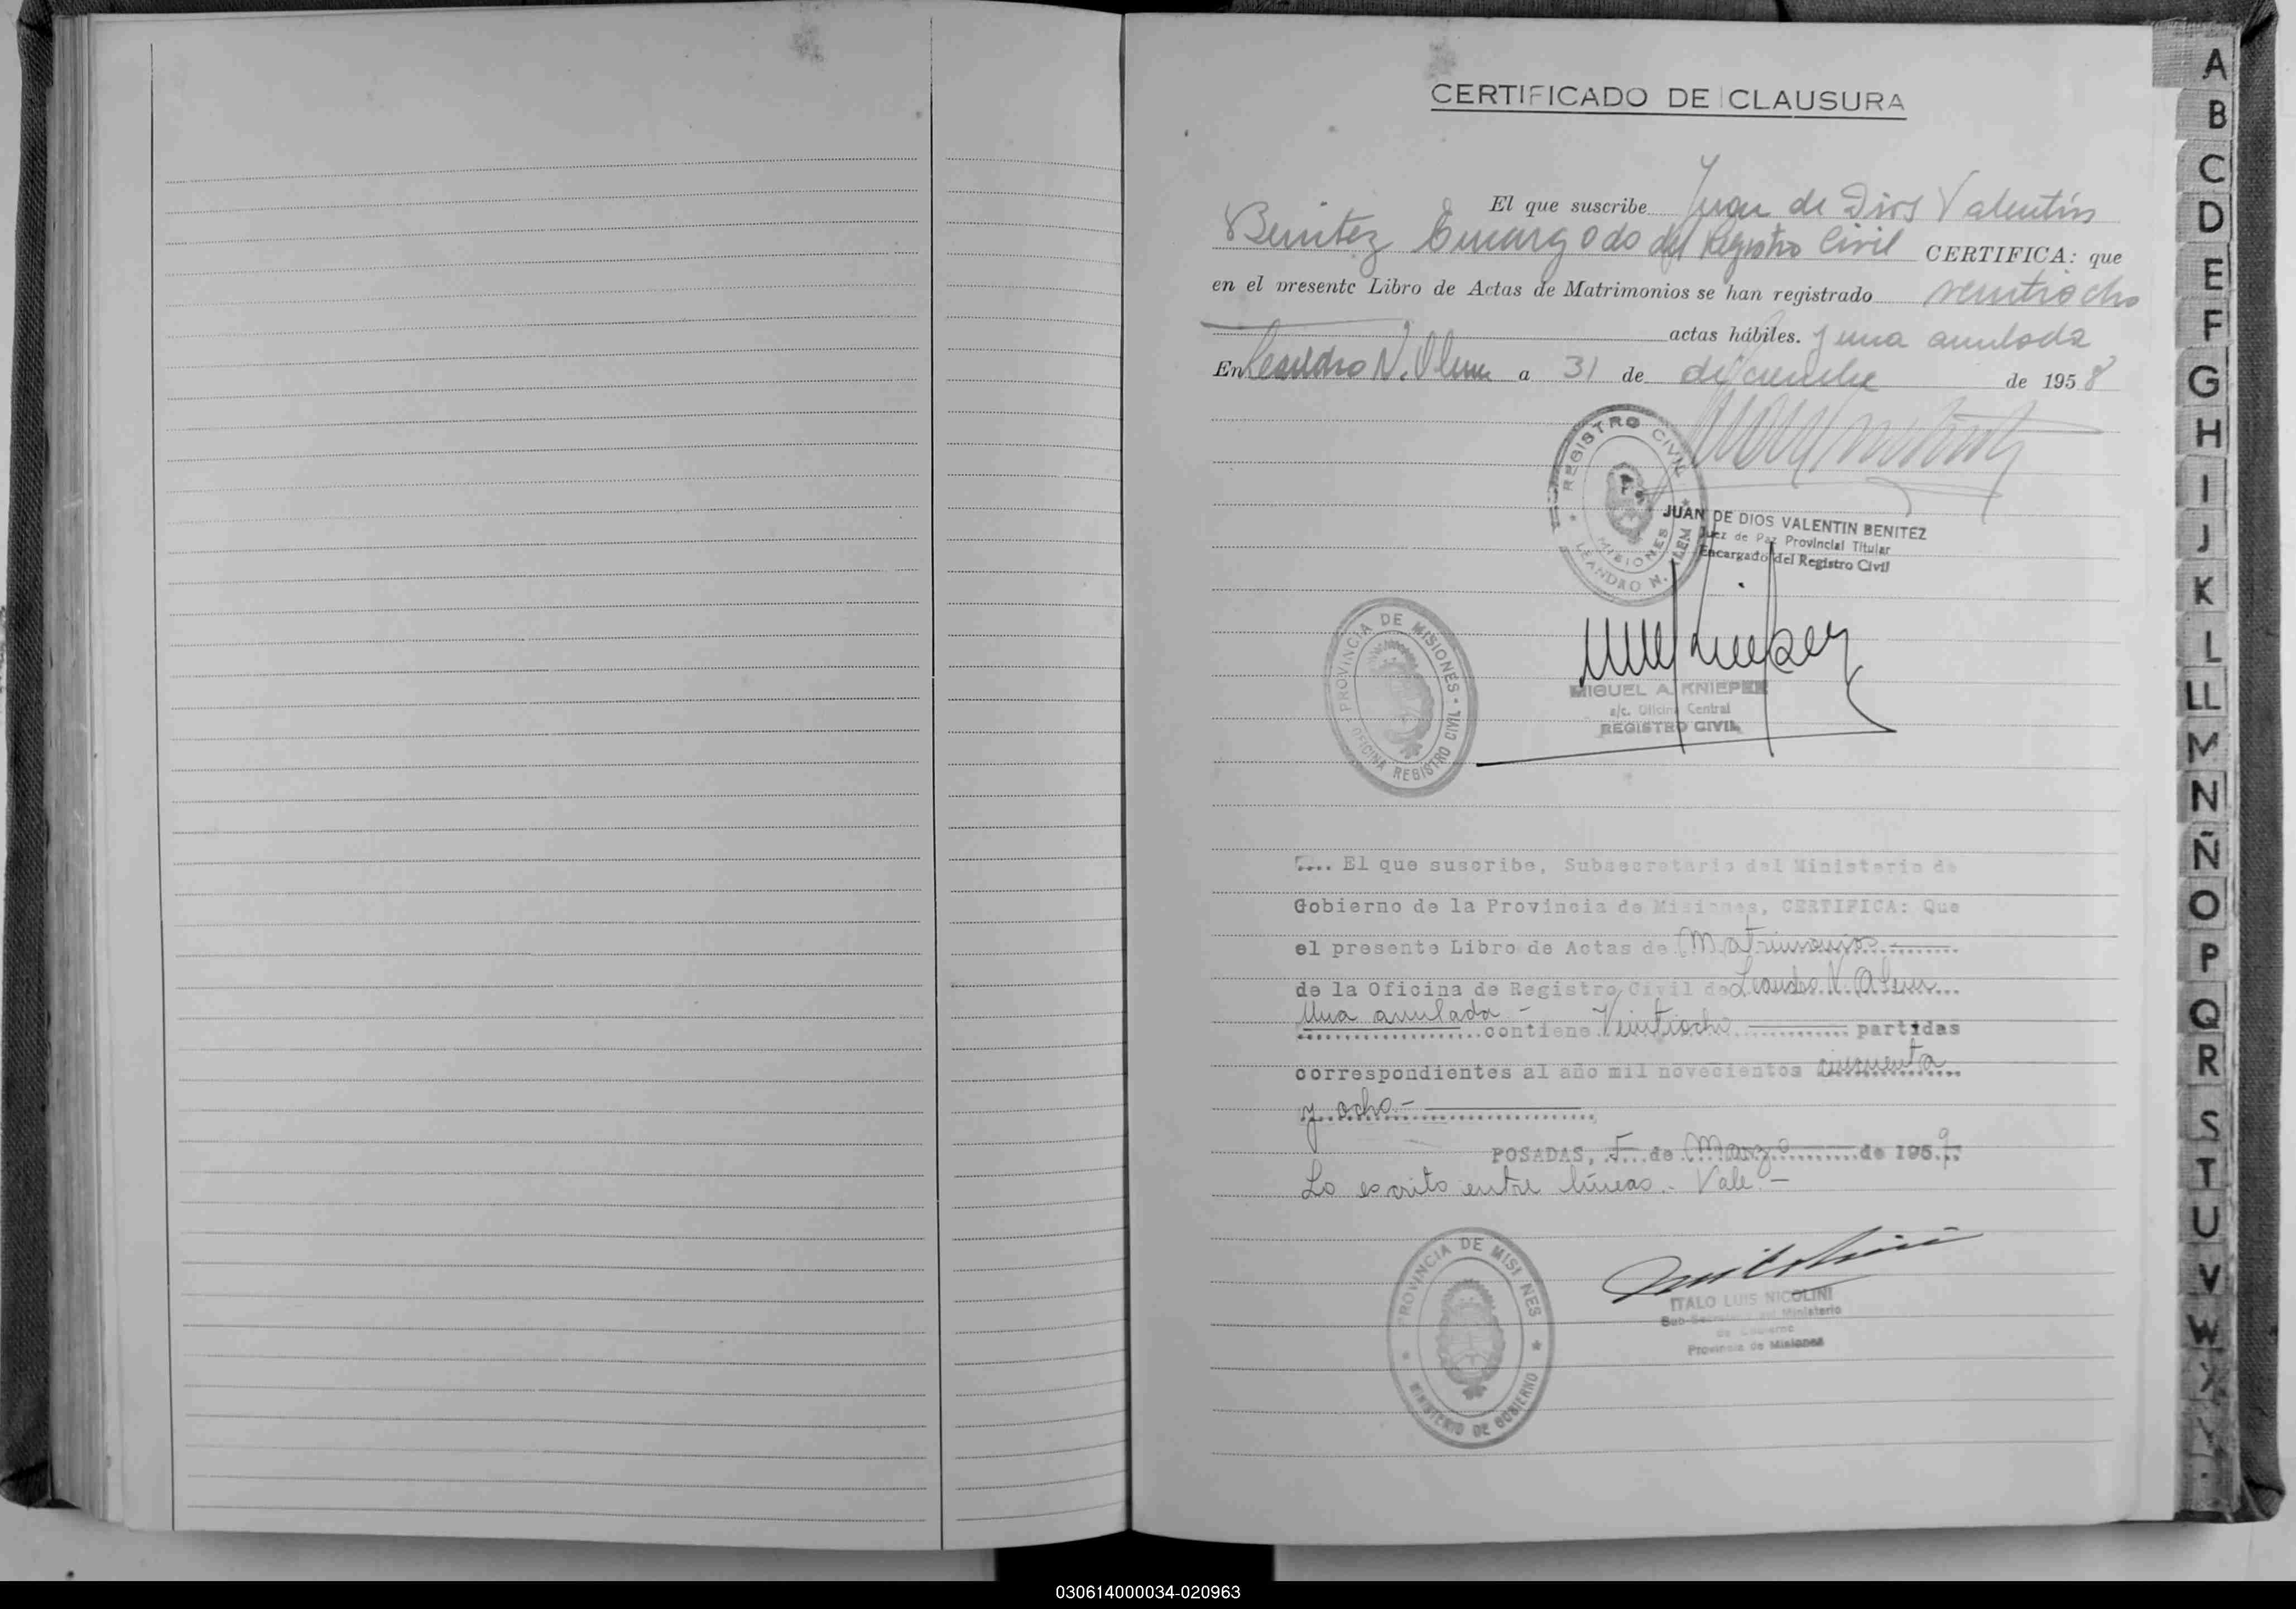 CERTIFICADO DE CLAUSURA
El que suscribe Juan de Dios Valentín
Benitez Encargado del Registro Civil CERTIFICA: que
en el presente Libro de Actas de Matrimonios se han registrado veintiocho
actas hábiles. y una anulada
En Leandro N. Alem a 31 de diciembre de 1958
REGISTRO CIVIL
MISIONES
LEANDRO N. ALEM
JUAN DE DIOS VALENTIN BENITEZ
Juez de Paz Provincial Titular
Encargado del Registro Civil
PROVINCIA DE MISIONES
OFICINA REGISTRO CIVIL
MIGUEL A. KNIEPER
a/c. Oficina Central
REGISTRO CIVIL
.... El que suscribe, Subsecretario del Ministerio de
Gobierno de la Provincia de Misiones, CERTIFICA: Que
el presente Libro de Actas de Matrimonios
de la Oficina de Registro Civil de Leandro N. Alem
Una anulada -
contiene Veintiocho partidas
correspondientes al año mil novecientos cincuenta
y ocho.-
POSADAS, 5 de Marzo de 1959
Lo escrito entre líneas.- Vale.-
PROVINCIA DE MISIONES
MINISTERIO DE GOBIERNO
ITALO LUIS NICOLINI
Sub-Secretario del Ministerio
de Gobierno
Provincia de Misiones
A
B
C
D
E
F
G
H
I
J
K
L
LL
M
N
Ñ
O
P
Q
R
S
T
U
V
W
X
030614000034-020963